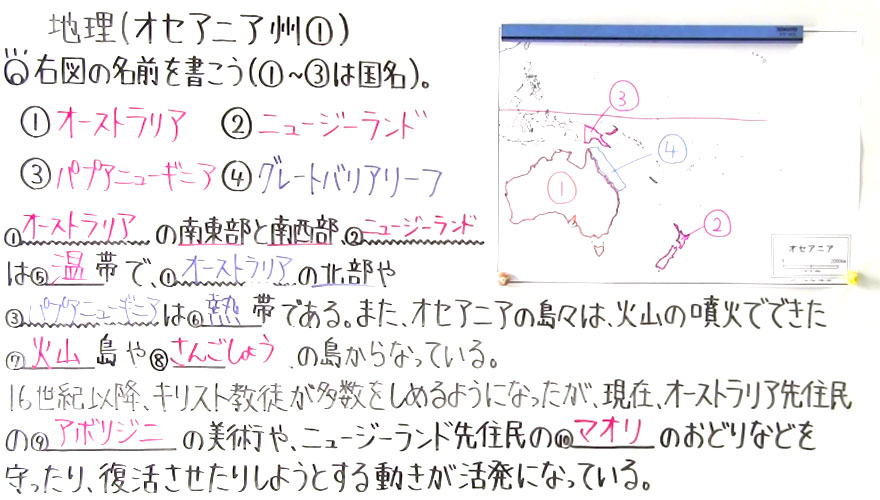 地理(オセアニア州①)
右図の名前を書こう(①~③は国名)。
①オーストラリア ②ニュージーランド
③パプアニューギニア ④グレートバリアリーフ
①オーストラリア の南東部と南西部、②ニュージーランド
は⑤温帯で、①オーストラリアの北部や
③パプアニューギニアは⑥熱帯である。また、オセアニアの島々は、火山の噴火でできた
⑦火山島や⑧さんごしょう の島からなっている。
16世紀以降、キリスト教徒が多数をしめるようになったが、現在、オーストラリア先住民
の⑨アボリジニ の美術や、ニュージーランド先住民の⑩マオリ のおどりなどを
守ったり、復活させたりしようとする動きが活発になっている。
③
④
①
②
オセアニア